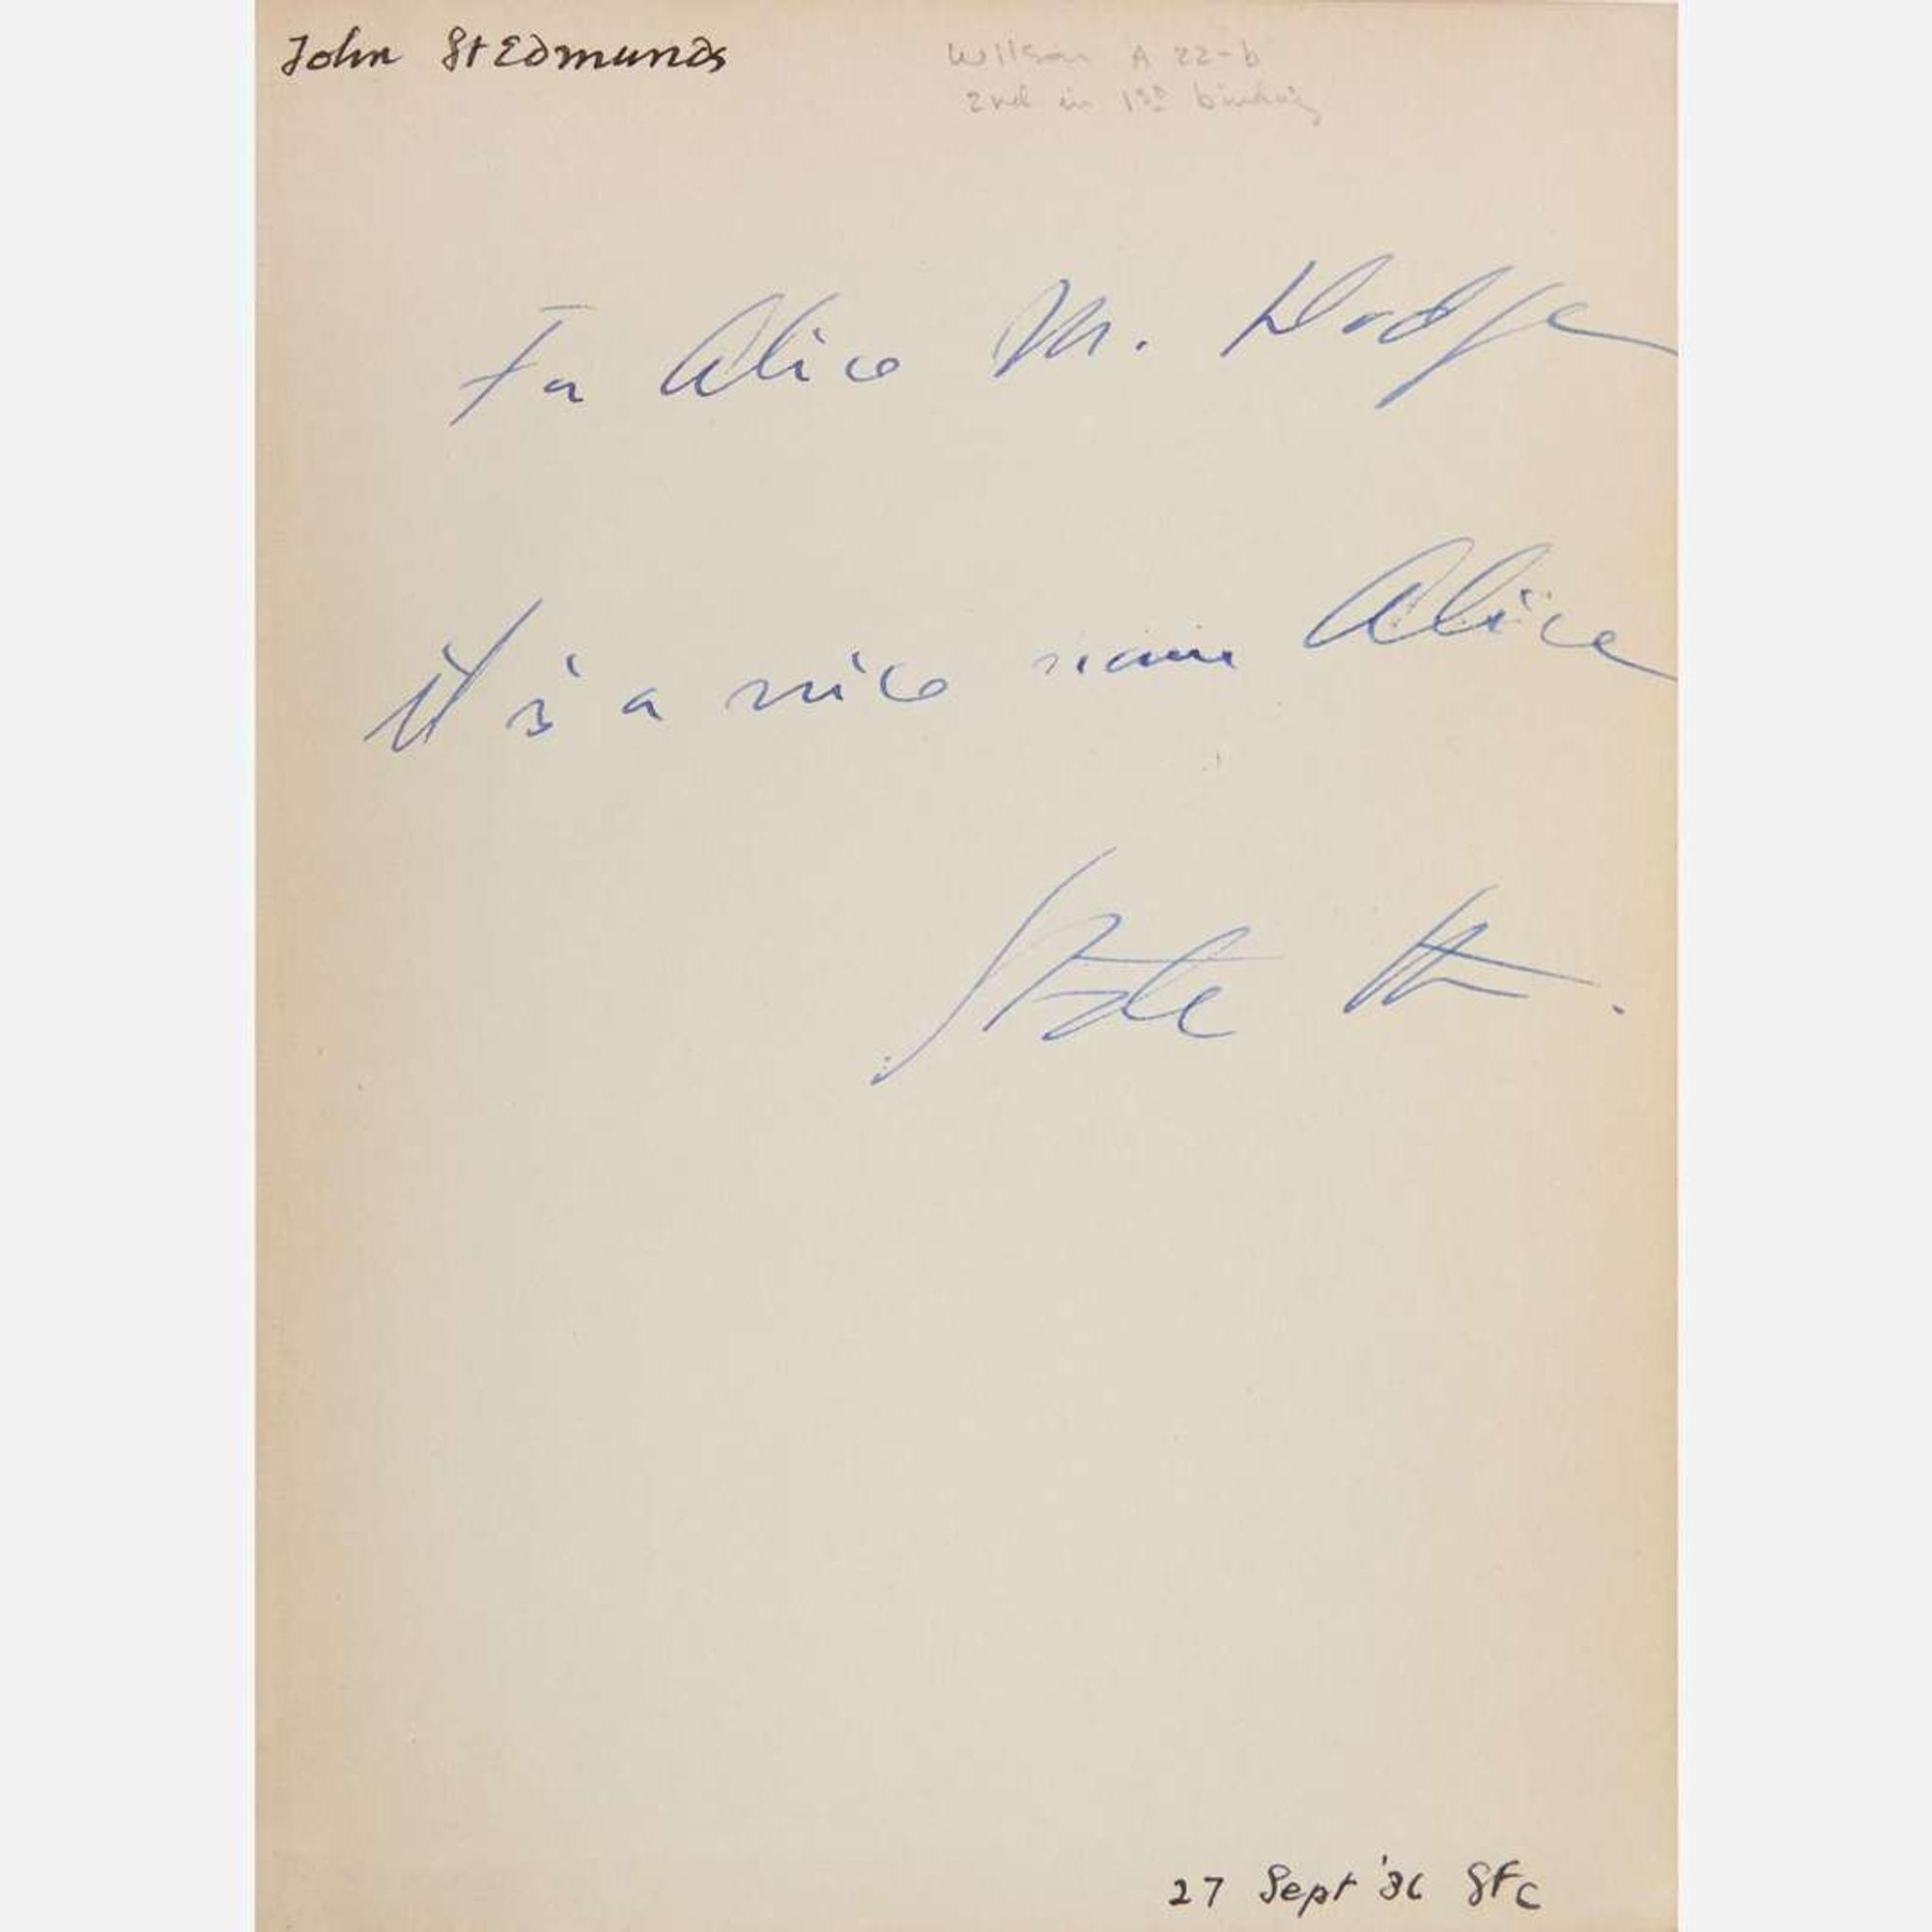 John St Edmunds
Wilson A 22-b
2nd in 1st binding
For Alice M. Dodge
It is a nice name Alice
Gtde Stn.
27 Sept '36 SFC